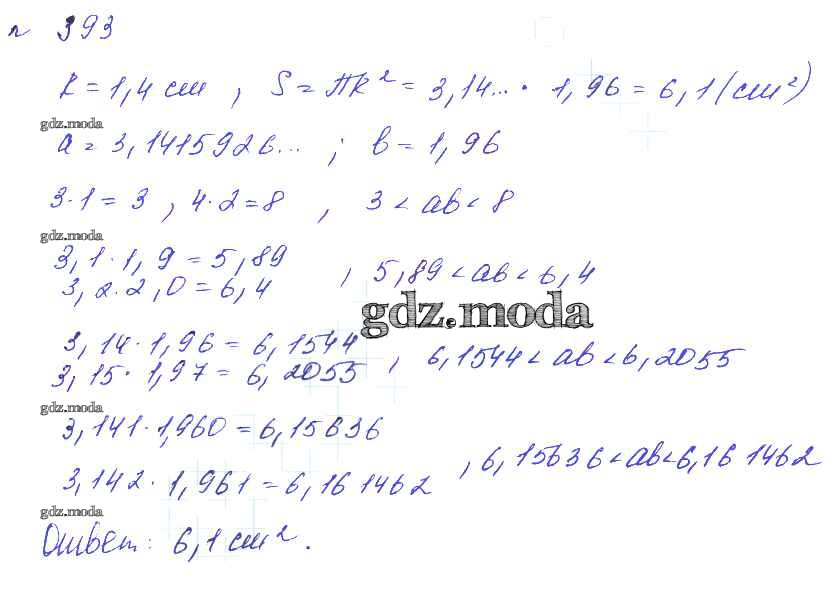 № 393
R = 1,4 см , S = ПR² = 3,14... · 1,96 = 6,1 (см²)
gdz.moda
a = 3,1415926... ; b = 1,96
3·1 = 3 , 4·2 = 8 , 3 < ab < 8
gdz.moda
3,1·1,9 = 5,89
3,2·2,0 = 6,4 , 5,89 < ab < 6,4
gdz.moda
3,14·1,96 = 6,1544
3,15·1,97 = 6,2055 , 6,1544 < ab < 6,2055
gdz.moda
3,141·1,960 = 6,15636
3,142·1,961 = 6,161462 , 6,15636 < ab < 6,161462
gdz.moda
Ответ: 6,1 см².